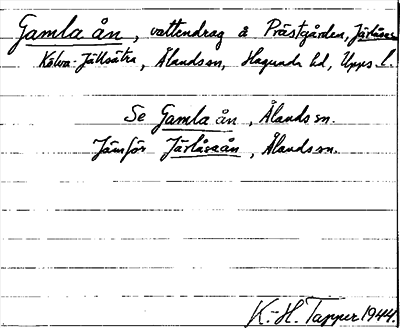 Gamla ån, vattendrag å Prästgården, Järlåsa
Kölva-Jällsätra, Ålands sn, Hagunda hd, Upps. l.
Se Gamla ån, Ålands sn.
Jämför Järlåsaån, Ålands sn.
K.-H. Tapper 1944.